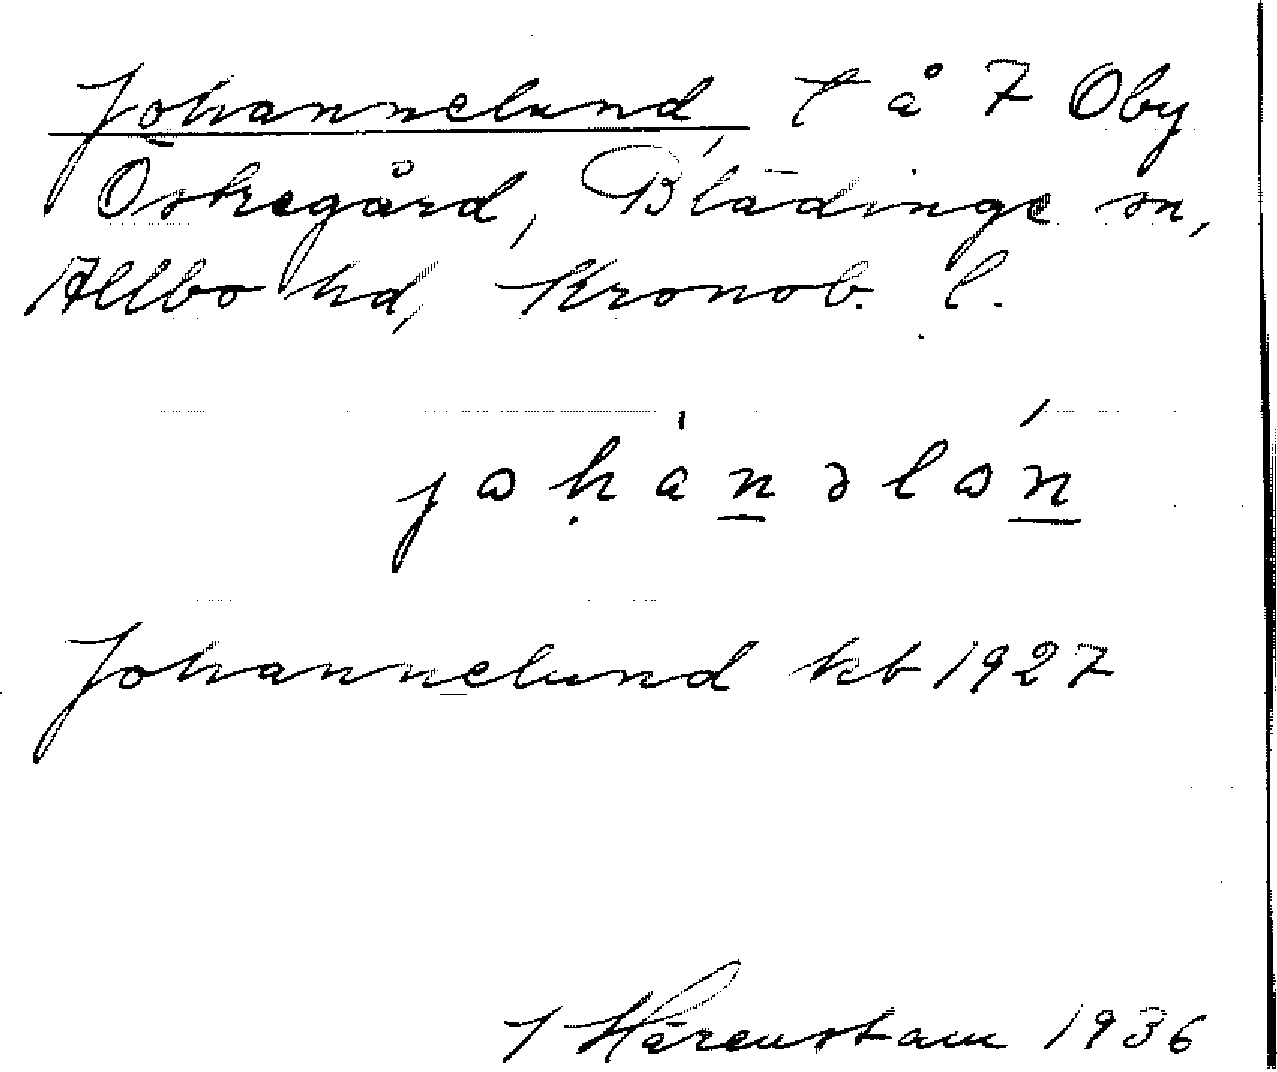 Johannelund, t å 7 Oby
Östregård, Blädinge sn,
Allbo hd, Kronob. l.
johánəló́n
Johannelund kb 1927
J Härenstam 1936